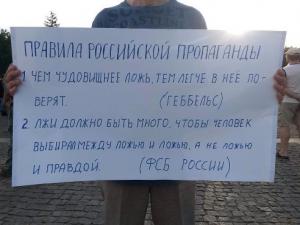 ПРАВИЛА РОССИЙСКОЙ ПРОПАГАНДЫ
1. ЧЕМ ЧУДОВИЩНЕЕ ЛОЖЬ, ТЕМ ЛЕГЧЕ В НЕЁ ПО-
ВЕРЯТ. (ГЕББЕЛЬС)
2. ЛЖИ ДОЛЖНО БЫТЬ МНОГО, ЧТОБЫ ЧЕЛОВЕК
ВЫБИРАЛ МЕЖДУ ЛОЖЬЮ И ЛОЖЬЮ, А НЕ ЛОЖЬЮ
И ПРАВДОЙ. (ФСБ РОССИИ)